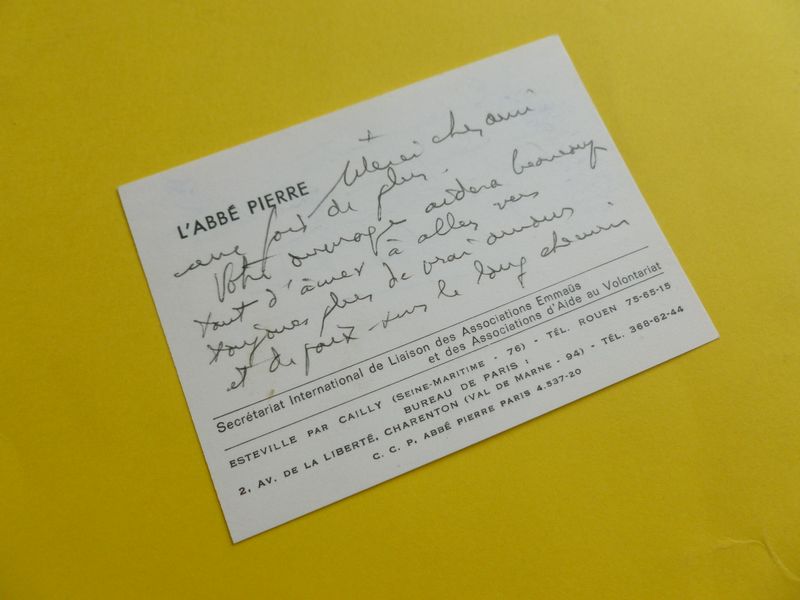 +
L'ABBÉ PIERRE Merci cher ami
une fois de plus.
Votre ouvrage aidera beaucoup
tant d'âmes à aller vers
toujours plus de vrai amour
et de paix sur le long chemin
Secrétariat International de Liaison des Associations Emmaüs
et des Associations d'Aide au Volontariat
ESTEVILLE PAR CAILLY (SEINE-MARITIME - 76) - TÉL. ROUEN 75-65-15
BUREAU DE PARIS :
2, AV. DE LA LIBERTÉ, CHARENTON (VAL DE MARNE - 94) - TÉL. 368-62-44
C. C. P. ABBÉ PIERRE PARIS 4.537-20